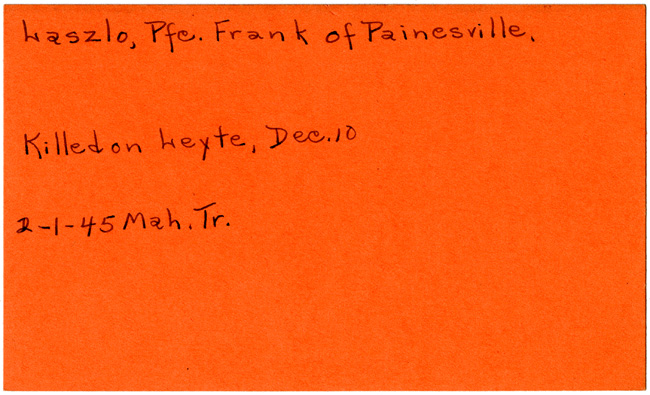 Laszlo, Pfc. Frank of Painesville.
Killed on Leyte, Dec. 10
2-1-45 Mah. Tr.